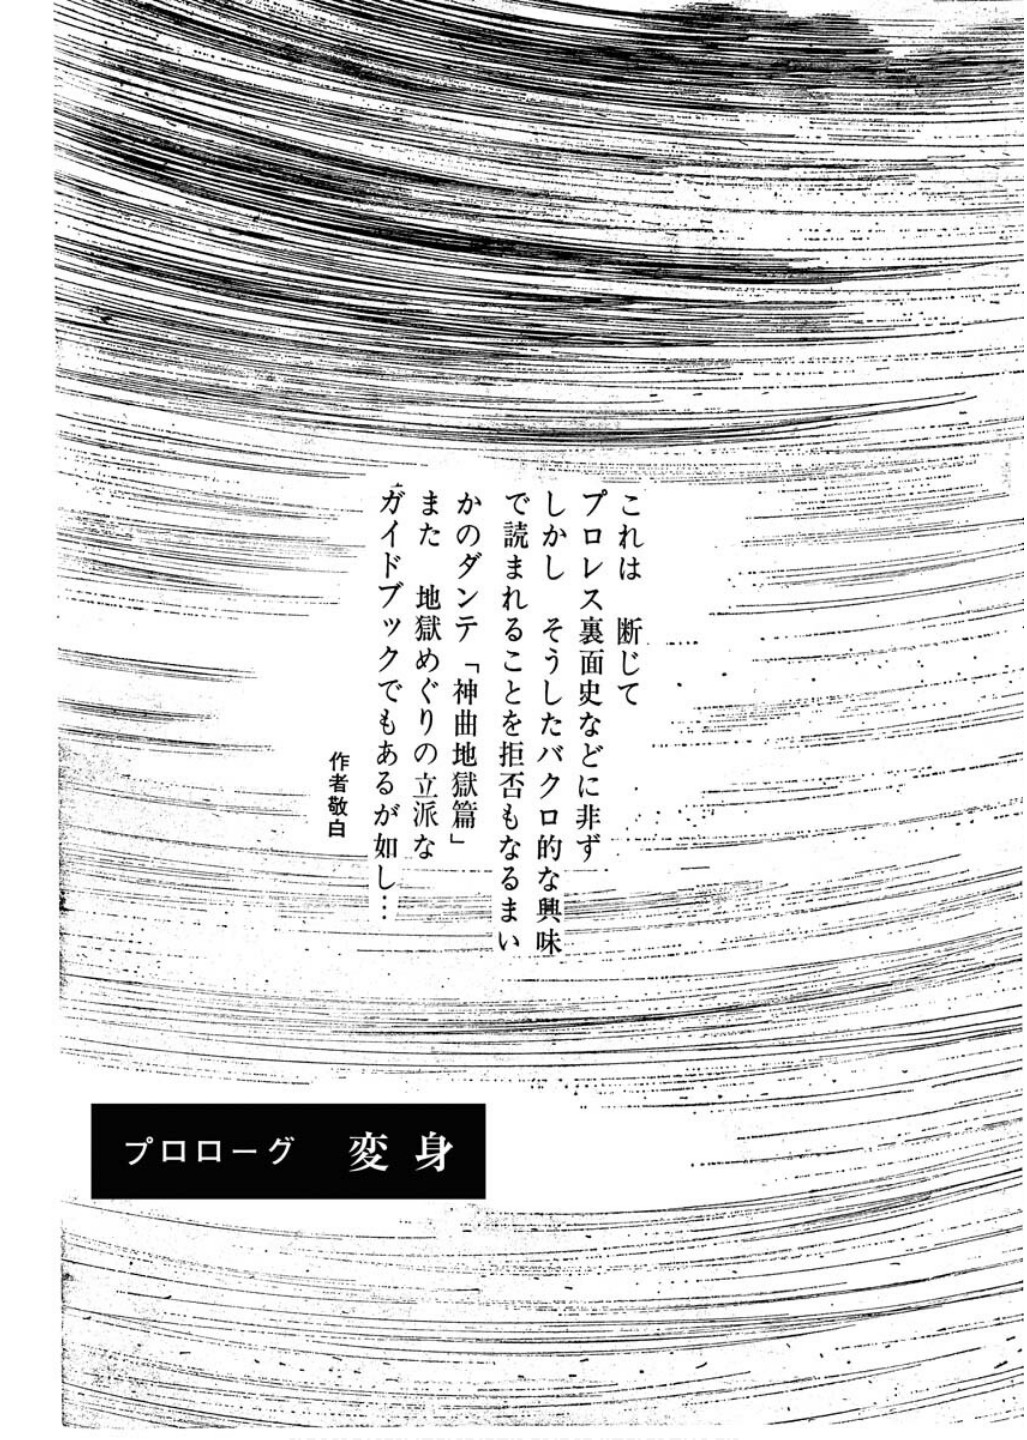 これは　断じて
プロレス裏面史などに非ず
しかし　そうしたバクロ的な興味
で読まれることを拒否もなるまい
かのダンテ「神曲地獄篇」
また　地獄めぐりの立派な
ガイドブックでもあるが如し…
作者敬白
プロローグ　変身